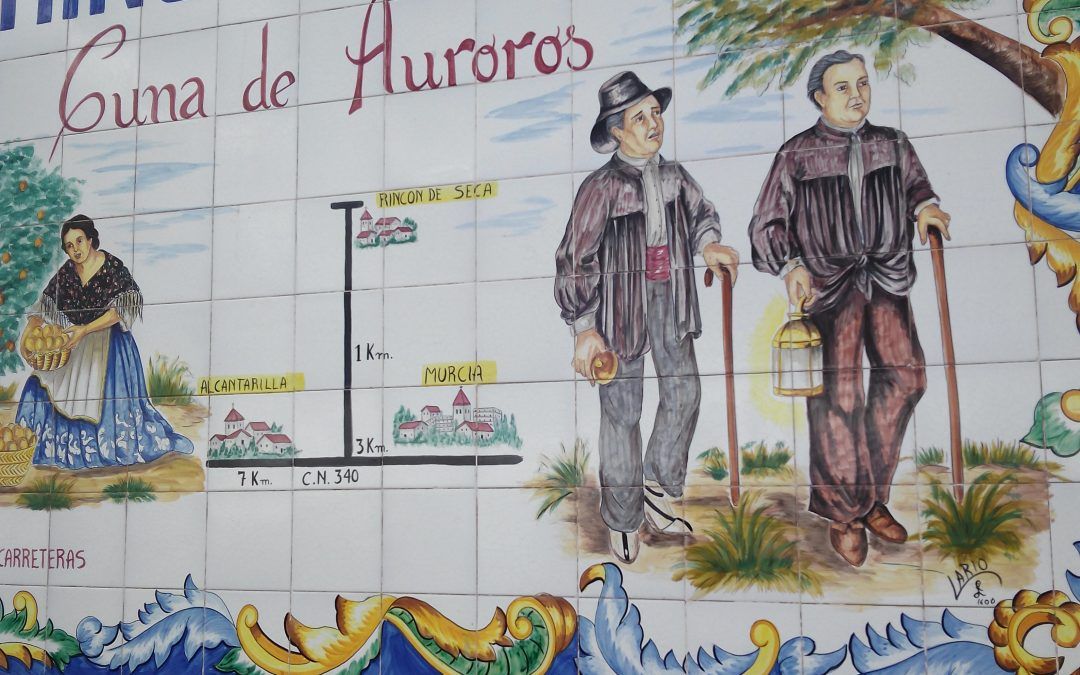 Cuna de Auroros
RINCON DE SECA
1 Km.
ALCANTARILLA
MURCIA
3 Km.
7 Km.
C.N. 340
CARRETERAS
LARIO